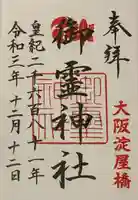 奉拝
大阪淀屋橋
御霊神社
皇紀二千六百八十一年
令和三年十二月十二日